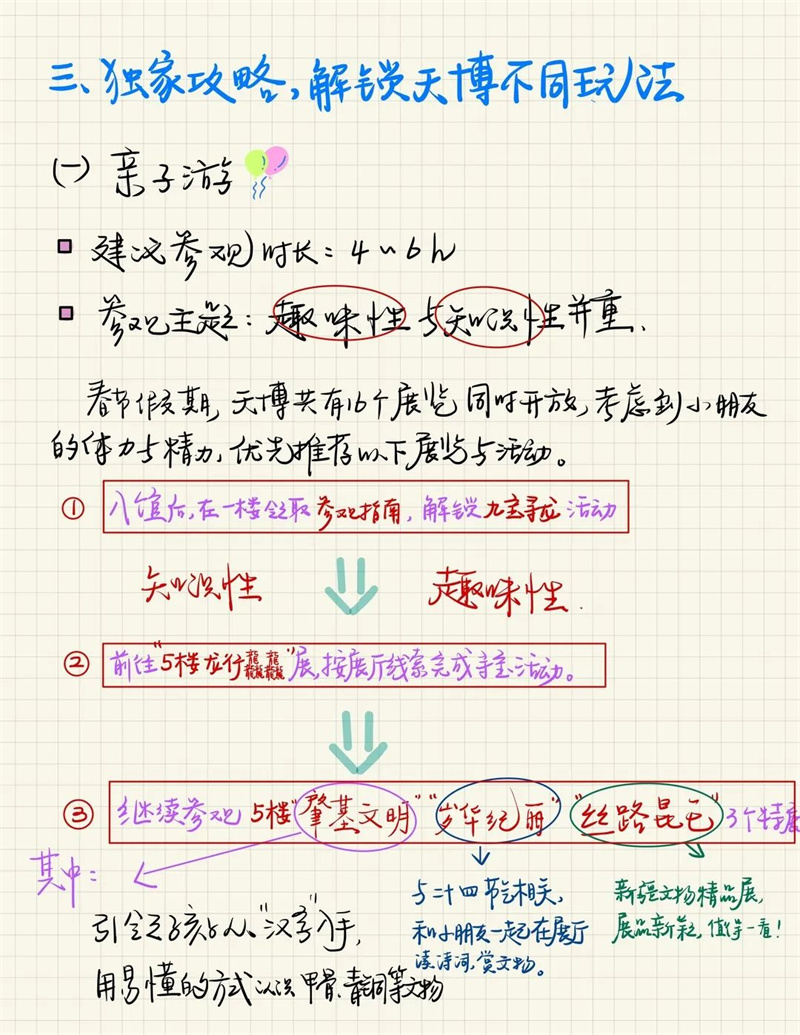 三、独家攻略,解锁天博不同玩法
(一) 亲子游
建议参观时长:4~6h
参观主题:趣味性与知识性并重.
春节假期,天博共有16个展览同时开放,考虑到小朋友
的体力与精力,优先推荐以下展览与活动。
① 入馆后,在一楼领取参观指南,解锁九宝寻龙活动
知识性 趣味性.
② 前往"5楼龙行龘龘"展,按展厅线索完成寻宝活动。
③ 继续参观5楼"肇基文明""岁华纪丽""丝路昆仑"3个特展
其中:
引领孩子从"汉字"入手,
用易懂的方式认识甲骨、青铜等文物
与二十四节气相关,
和小朋友一起在展厅
读诗词,赏文物。
新疆文物精品展,
展品新颖,值得一看!